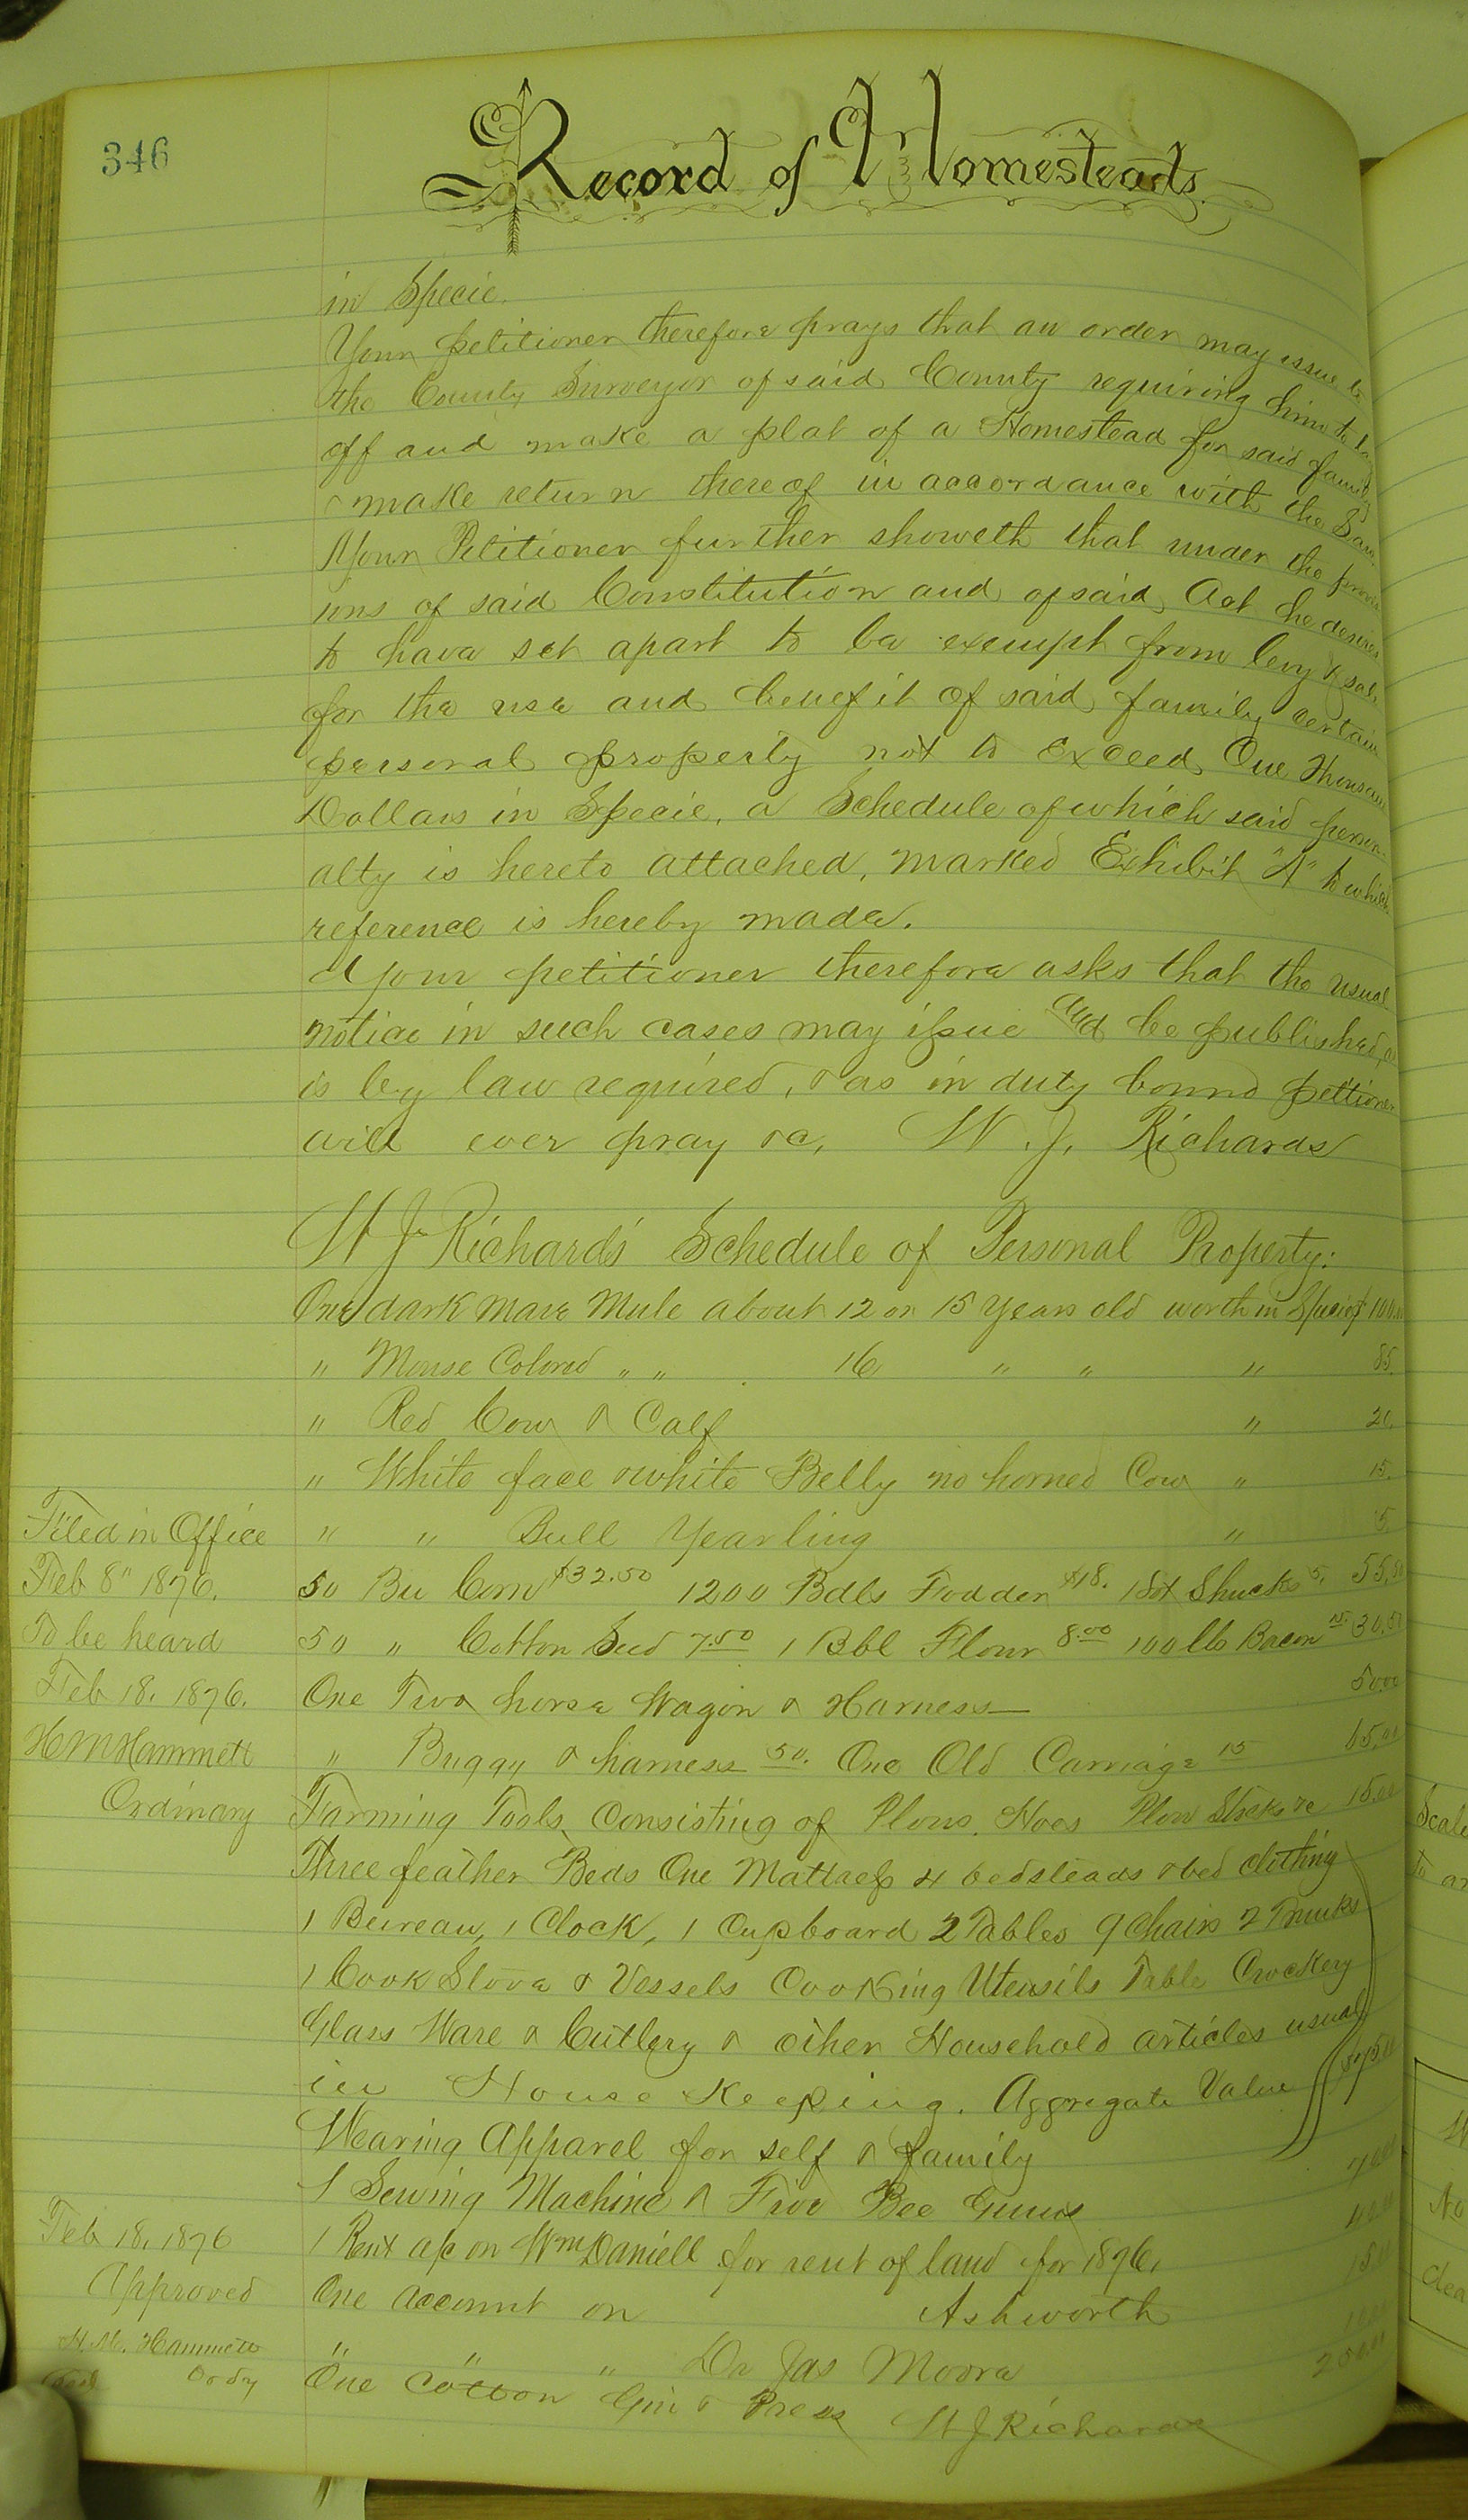 346
Record of Homesteads
in Specie.
Your petitioner therefore prays that an order may issue to
the County Surveyor of said County requiring him to lay
off and make a plat of a Homestead for said family
& make return thereof in accordance with the Law
Your Petitioner further showeth that under the provis
ions of said Constitution and of said Act he desires
to have set apart to be exempt from levy & sale
for the use and benefit of said family certain
personal property not to exceed One Thousand
Dollars in Specie, a Schedule of which said person-
alty is hereto attached, marked Exhibit "A" to which
reference is hereby made.
Your petitioner therefore asks that the usual
notice in such cases may issue and be published, as
is by law required, & as in duty bound petitioner
will ever pray &c, W. J. Richards
W J Richards' Schedule of Personal Property:
One dark mare Mule about 12 or 15 Years old worth in Specie $100.00
" Mouse Colored " " 16 " " " 85.
" Red Cow & Calf " 20.
" White face & white Belly no horned Cow " 15.
Filed in Office
" " Bull Yearling " 5.
Feb 8" 1876.
50 Bu Corn $32.50 1200 Bdls Fodder $18. Shucks 5. 55.50
To be heard
50 " Cotton Seed 7.50 1 Bbl Flour 8.00 100 lb Bacon 15. 30.50
Feb 18. 1876.
One Two horse Wagon & Harness 50.00
H M Hammett
" Buggy & harness 50. One Old Carriage 15 65.00
Ordinary
Farming Tools Consisting of Plows, Hoes Plow Stocks &c 15.00
Three feather Beds One Mattress 4 bedsteads & bed clothing
1 Bureau, 1 Clock, 1 Cupboard 2 Tables 9 Chairs 2 Trunks
1 Cook Stove & Vessels Cooking Utensils Table Crockery
Glass Ware & Cutlery & other Household articles usual
in House Keeping. Aggregate Value
Wearing Apparel for self & family
1 Sewing Machine & Five Bee Gums
Feb 18. 1876
1 Rent a/c on Wm Daniell for rent of land for 1876.
Approved
One account on Ashworth
H. M. Hammett
" " " Dr Jas Moore
Ordy
One Cotton Gin & Press
W J Richards